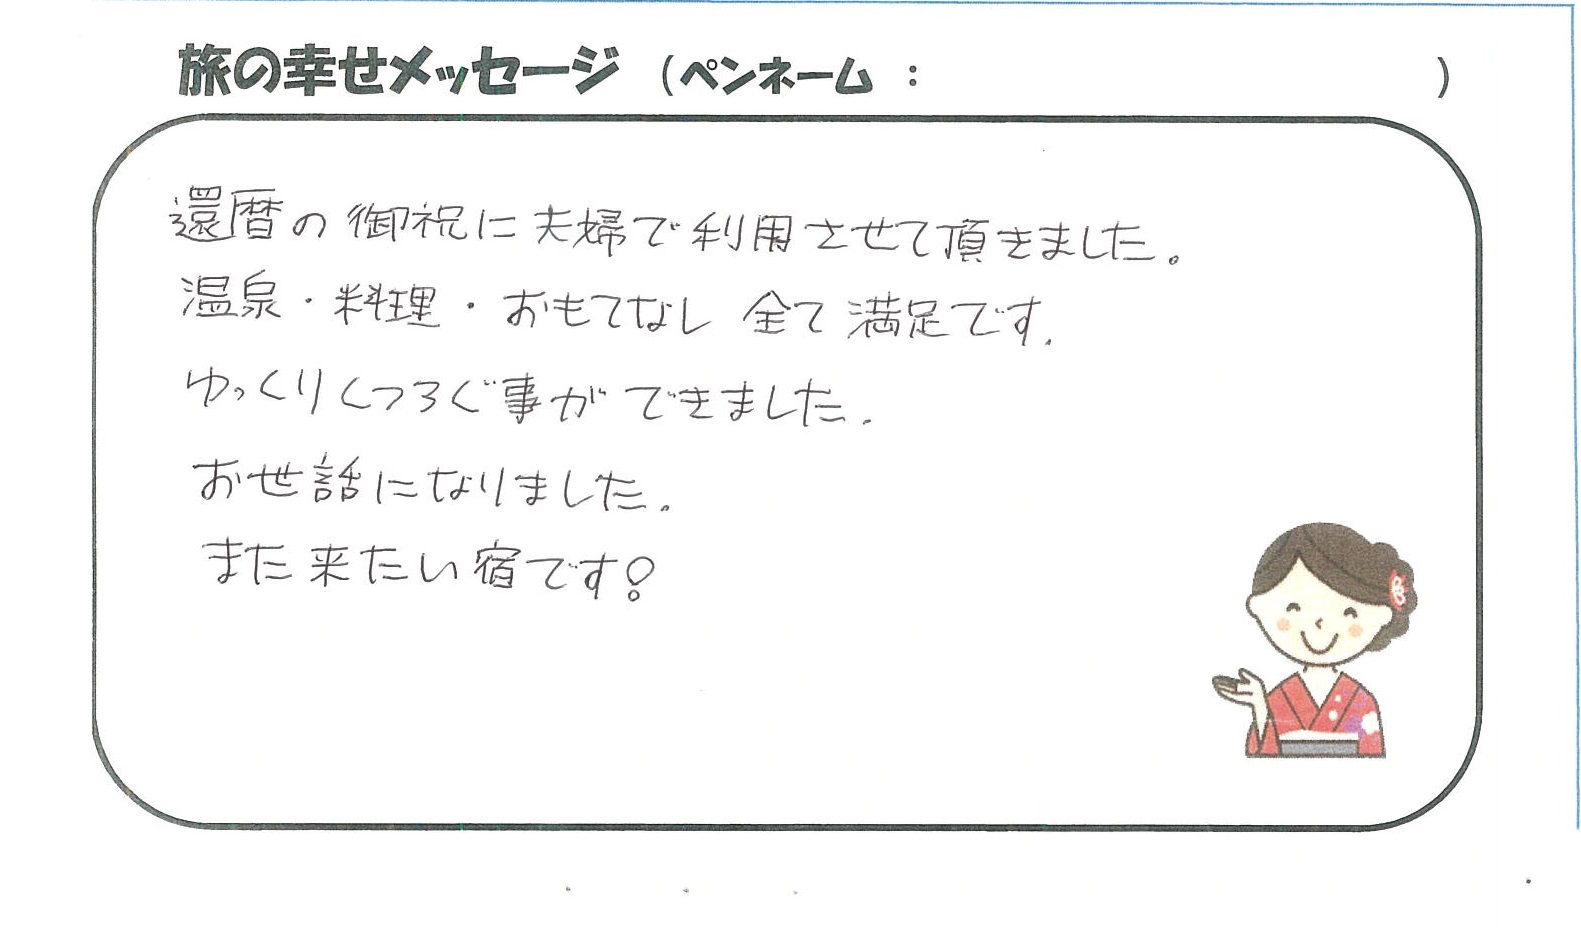 旅の幸せメッセージ （ペンネーム ： ）
還暦の御祝に夫婦で利用させて頂きました。
温泉・料理・おもてなし 全て満足です.
ゆっくりくつろぐ事ができました.
お世話になりました.
また来たい宿です!